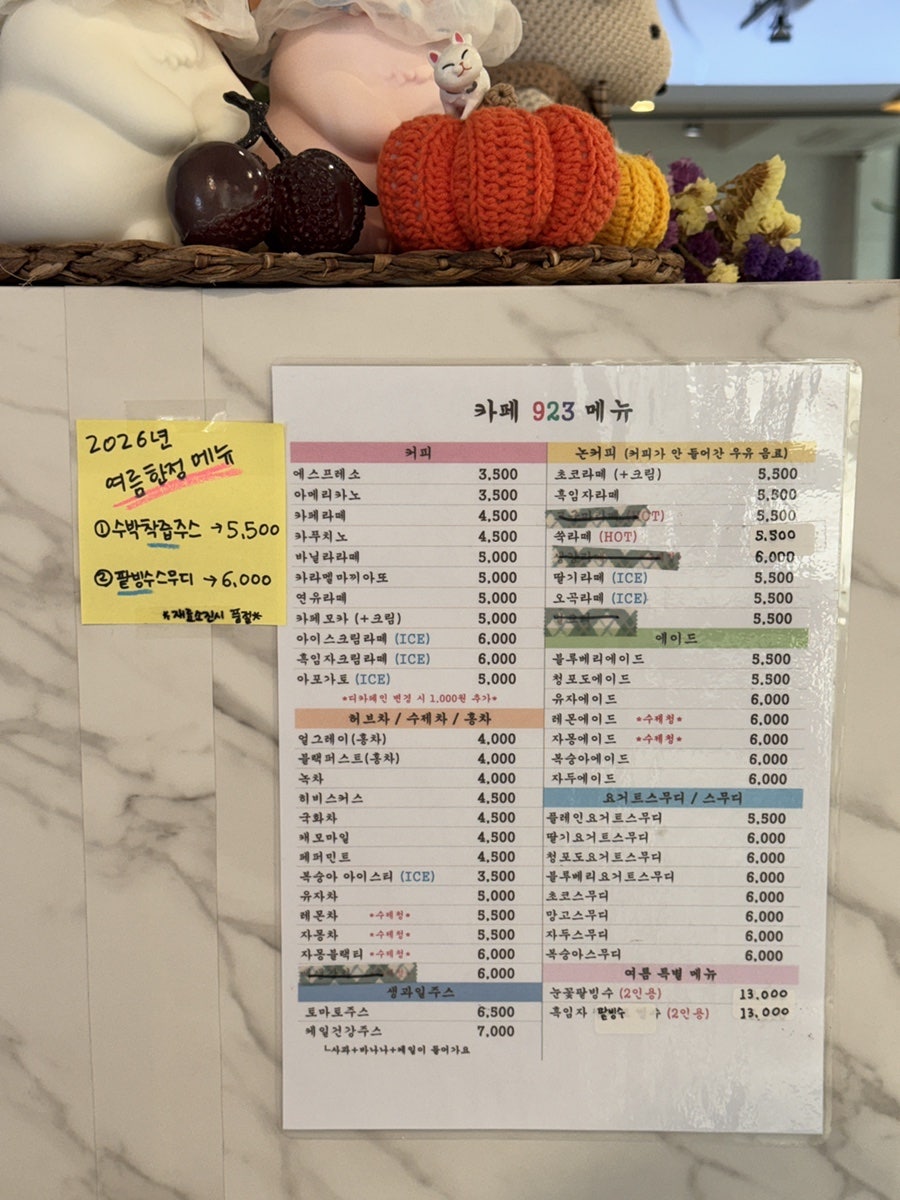 2026년
여름한정 메뉴
①수박착즙주스 →5,500
②팥빙수스무디 →6,000
*재료소진시 품절*
카페 923 메뉴
커피
에스프레소 3,500
아메리카노 3,500
카페라떼 4,500
카푸치노 4,500
바닐라라떼 5,000
카라멜마끼아또 5,000
연유라떼 5,000
카페모카 (+크림) 5,000
아이스크림라떼 (ICE) 6,000
흑임자크림라떼 (ICE) 6,000
아포가토 (ICE) 5,000
*디카페인 변경 시 1,000원 추가*
허브차 / 수제차 / 홍차
얼그레이(홍차) 4,000
블랙퍼스트(홍차) 4,000
녹차 4,000
히비스커스 4,500
국화차 4,500
캐모마일 4,500
페퍼민트 4,500
복숭아 아이스티 (ICE) 3,500
유자차 5,000
레몬차 *수제청* 5,500
자몽차 *수제청* 5,500
자몽블랙티 *수제청* 6,000
6,000
생과일주스
토마토주스 6,500
케일건강주스 7,000
└사과+바나나+케일이 들어가요
논커피 (커피가 안 들어간 우유 음료)
초코라떼 (+크림) 5,500
흑임자라떼 5,500
OT) 5,500
쑥라떼 (HOT) 5,500
6,000
딸기라떼 (ICE) 5,500
오곡라떼 (ICE) 5,500
5,500
에이드
블루베리에이드 5,500
청포도에이드 5,500
유자에이드 6,000
레몬에이드 *수제청* 6,000
자몽에이드 *수제청* 6,000
복숭아에이드 6,000
자두에이드 6,000
요거트스무디 / 스무디
플레인요거트스무디 5,500
딸기요거트스무디 6,000
청포도요거트스무디 6,000
블루베리요거트스무디 6,000
초코스무디 6,000
망고스무디 6,000
자두스무디 6,000
복숭아스무디 6,000
여름 특별 메뉴
눈꽃팥빙수 (2인용) 13,000
흑임자 팥빙수 (2인용) 13,000